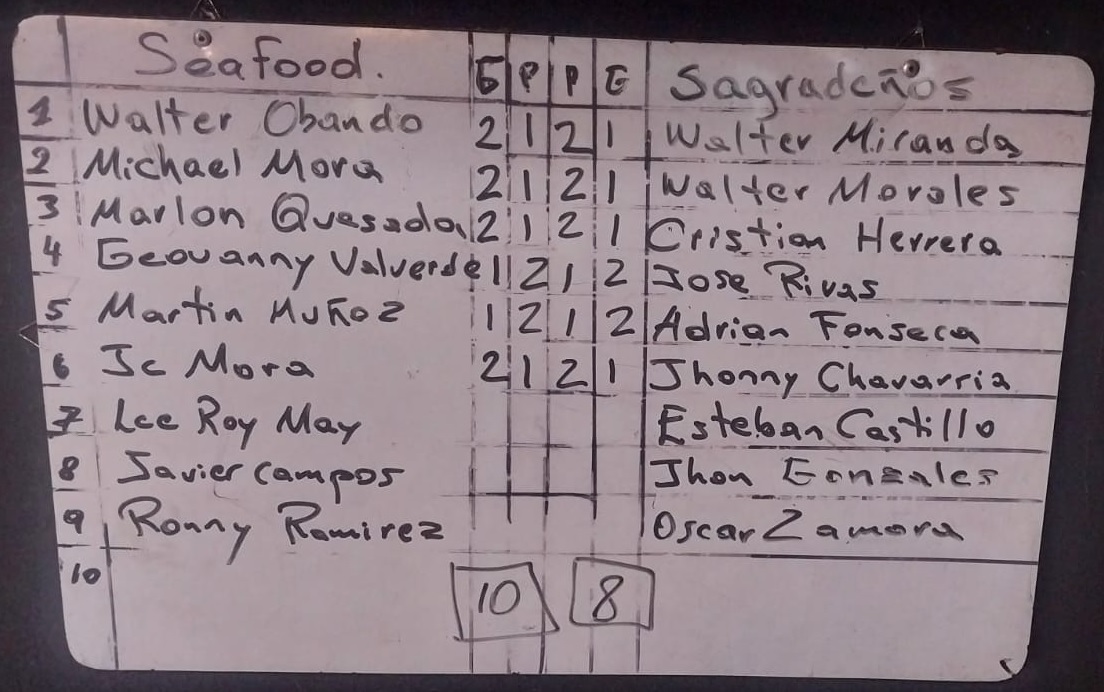 Seafood. G P P G Sagradeños
1 Walter Obando 2 1 2 1 Walter Miranda
2 Michael Mora 2 1 2 1 Walter Morales
3 Marlon Quesada 2 1 2 1 Cristian Herrera
4 Geovanny Valverde 1 2 1 2 Jose Rivas
5 Martin Muñoz 1 2 1 2 Adrian Fonseca
6 Jc Mora 2 1 2 1 Jhonny Chavarria
7 Lee Roy May Esteban Castillo
8 Javier campos Jhon Gonzales
9 Ronny Ramirez Oscar Zamora
10
10 8